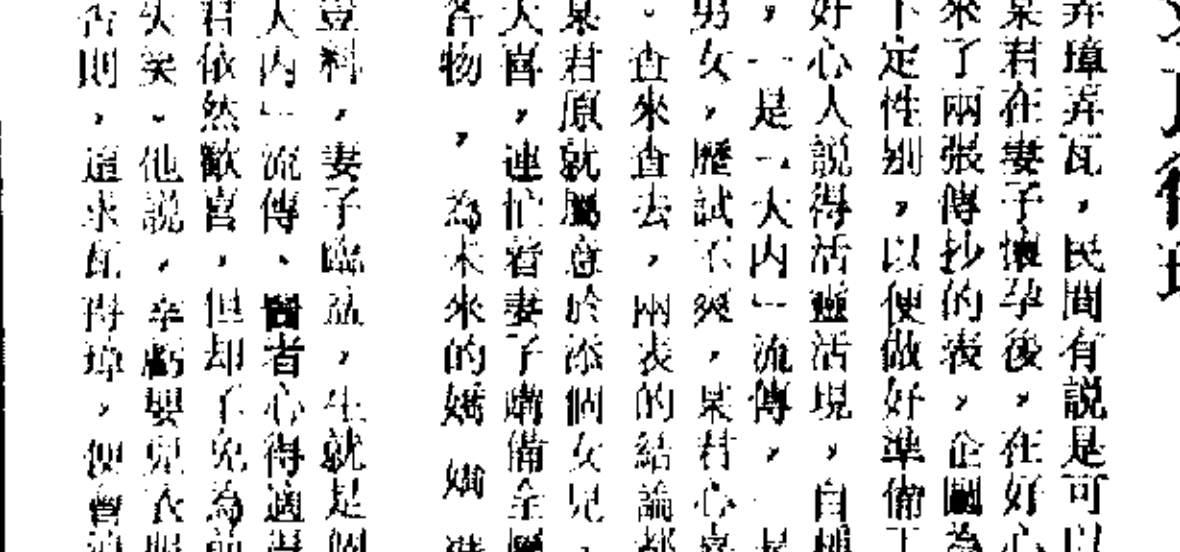 弄璋弄瓦，民間有説是可以
某君在妻子懷孕後，在好心
來了兩張傳抄的表，企圖為
下定性别，以便做好準備工
好心人説得活靈活現，自稱
，一是「大内」流傳，一是
男女，歷試不爽，某君心喜
。查來查去，兩表的結論都
某君原就屬意於添個女兒，
大喜，連忙着妻子購備全屬
各物，為未來的嬌嬌
豈料，妻子臨盆，生就是個
大内」流傳、醫者心得適得
君依然歡喜，但却不免為前
失笑。他説，幸虧嬰兒衣服
否則，這求瓦得璋，便會